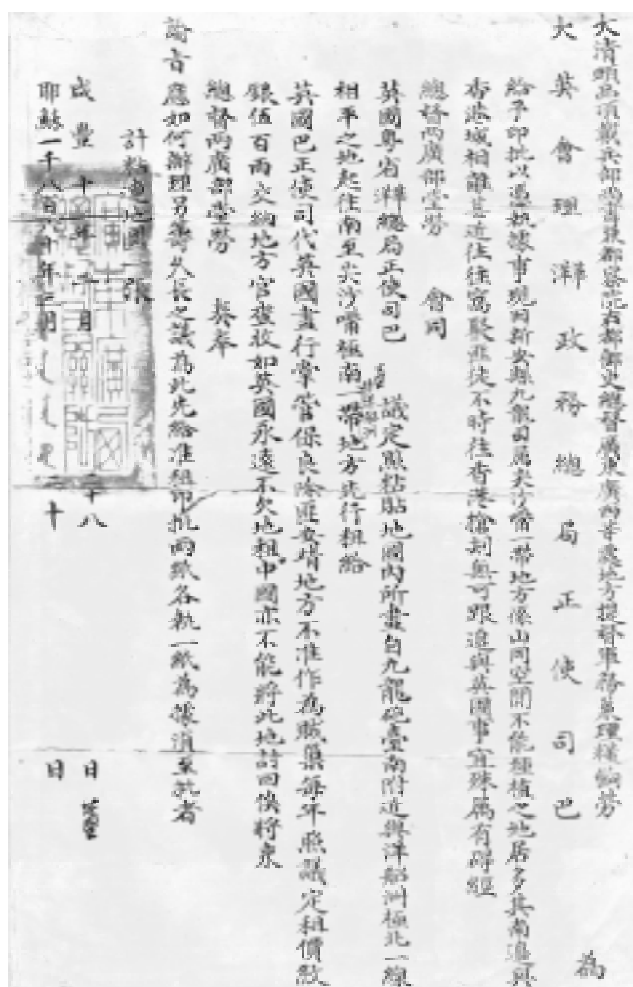 大清頭品頂戴兵部尚書兼都察院右都御史總督廣東廣西等處地方提督軍務兼理糧餉勞
大英會理華政務總局正使司巴 為
給予印批以憑執據事現因新安縣九龍司屬尖沙嘴一帶地方係山岡空閒不能種植之地居多其南邊與
香港城相離甚近往往窩聚匪徒不時往香港搶刦無可跟追與英國事宜殊屬有碍經
總督兩廣部堂勞 會同
英國粵省總局正使司巴 議定照粘貼地圖內所畫自九龍砲臺南附近與洋船洲極北一線
相平之地起往南至尖沙嘴極南一帶地方先行租給
英國巴正使司代英國畫行掌管保良除匪妥堵地方不准作為賊巢每年照議定租價紋
銀伍百兩交納地方官查收如英國永遠不欠地租中國亦不能將此地討回俟將來
總督兩廣部堂勞 具奉
諭旨應如何辦理另籌久長之議為此先給准租印批兩紙各執一紙為據須至批者
計粘邊地圖一張
咸豐十年 二月 二十八 日
耶穌一千八百六十年三月 二十 日